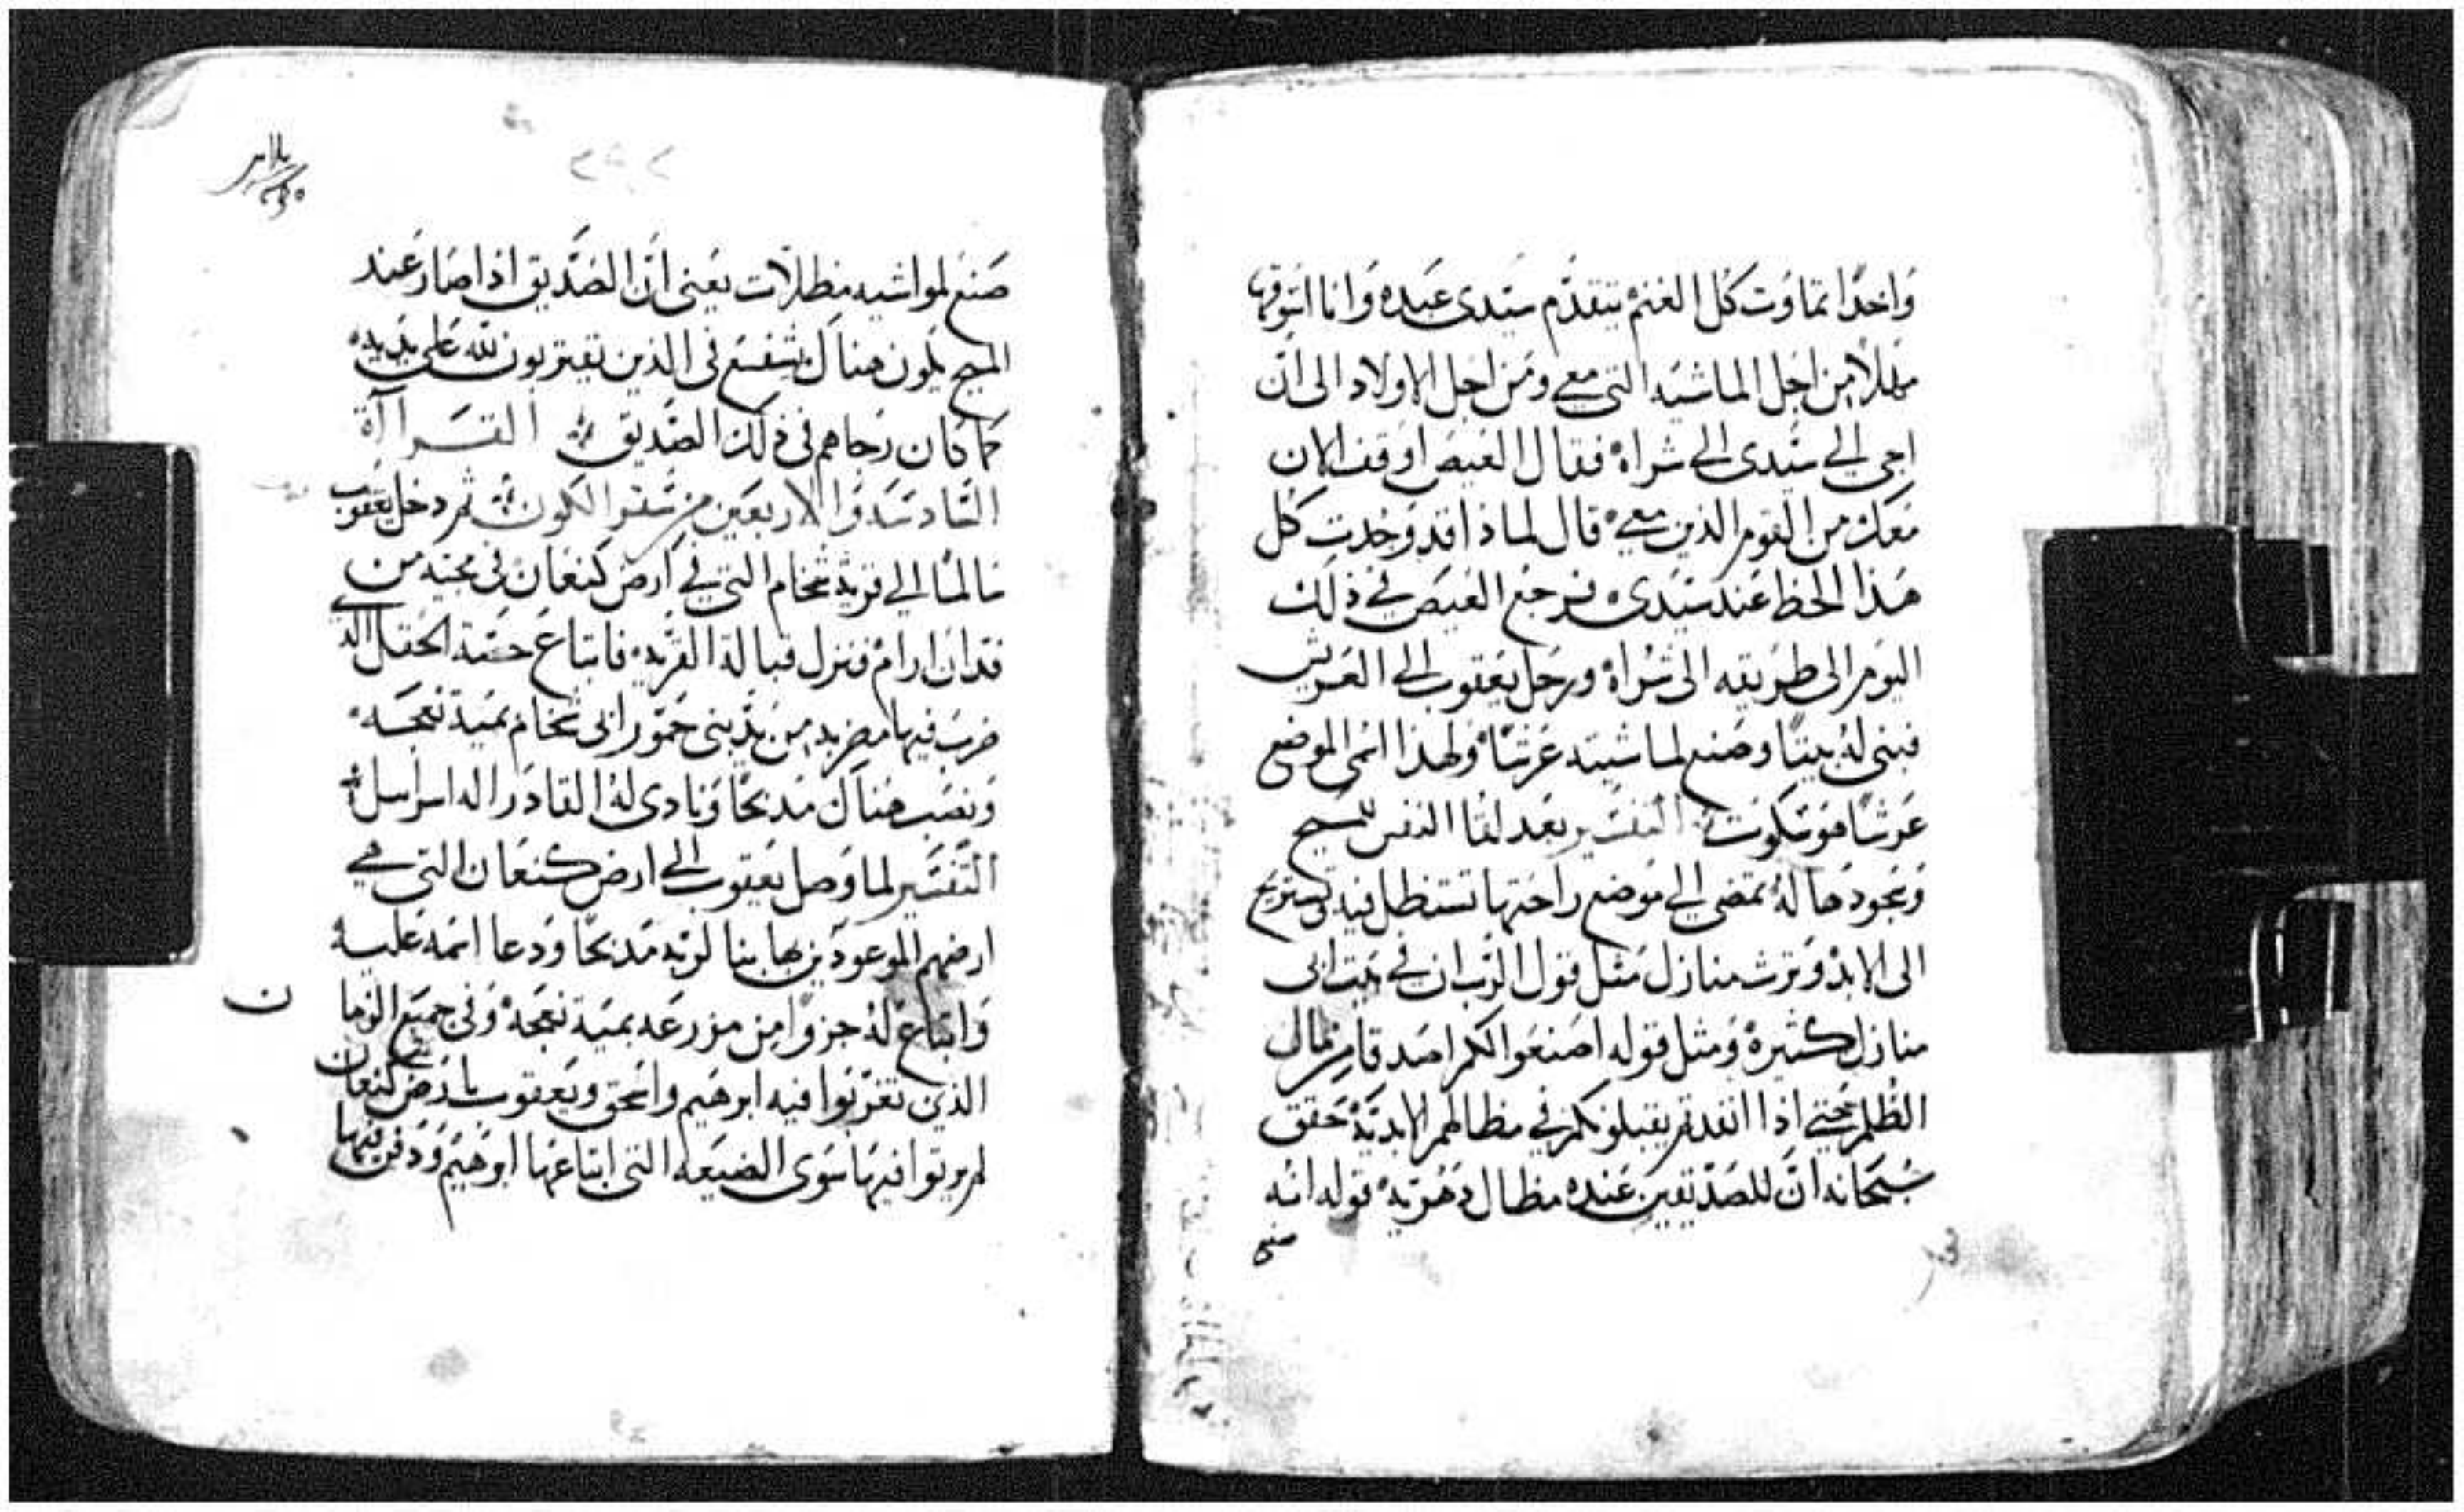 واحدًا تماوت كل الغنم يتقدم سيدى عبده وانا اسوقها
مهلًا من اجل الماشيه التى معى ومن اجل الاولاد الى ان
اجى الى سيدى الى شراه فقال العيص اوقف الان
معك من القوم الذين معى قال لماذا قد وجدت كل
هذا الحظ عند سيدى فرجع العيص فى ذلك
اليوم الى طريقه الى شراه ورحل يعقوب الى العريش
فبنى له بيتًا وصنع لماشيته عرشًا ولهذا اسمى الموضع
عرشًا هو سكوت التفسير بعد لقا النفس للمسيح
وسجودها له تمضى الى موضع راحتها تستظل فيه وتستريح
الى الابد وترث منازل مثل قول الرب ان فى بيت ابى
منازل كثيره ومثل قوله اصنعوا لكم اصدقا من مال
الظلم حتى اذا انفدتم يقبلونكم فى مظالهم الابديه حقق
سبحانه ان للصديقين عنده مظال دهريه قوله انه
صنع
صنع لمواشيه مظلات يعنى ان الصديق اذا صار عند
المسيح يكون هناك يشفع فى الذين يقتربون لله على يديه
كما كان رجاهم فى ذلك الصديق القراآة
السادسه والاربعين من سفر الكون ثم دخل يعقوب
سالمًا الى قرية شخام التى فى ارض كنعان فى مجيه من
فدان ارام فنزل قبالة القريه فابتاع حصة الحقل الذى
ضرب فيها مضربه من يد بنى حمور ابى شخام بمية نعجه
ونصب هناك مذبحًا ونادى له القادر اله اسراسل
التفسير لما وصل يعقوب الى ارض كنعان التى هى
ارضهم الموعودين بها بنا لربه مذبحًا ودعا اسمه عليه
وابتاع له جزوًا من مزرعه بمية نعجه وفى جميع الزمان
الذى تغربوا فيه ابرهيم واسحق ويعقوب بارض كنعان
لم يرثوا فيها سوى الضيعه التى ابتاعها ابرهيم ودفن فيها